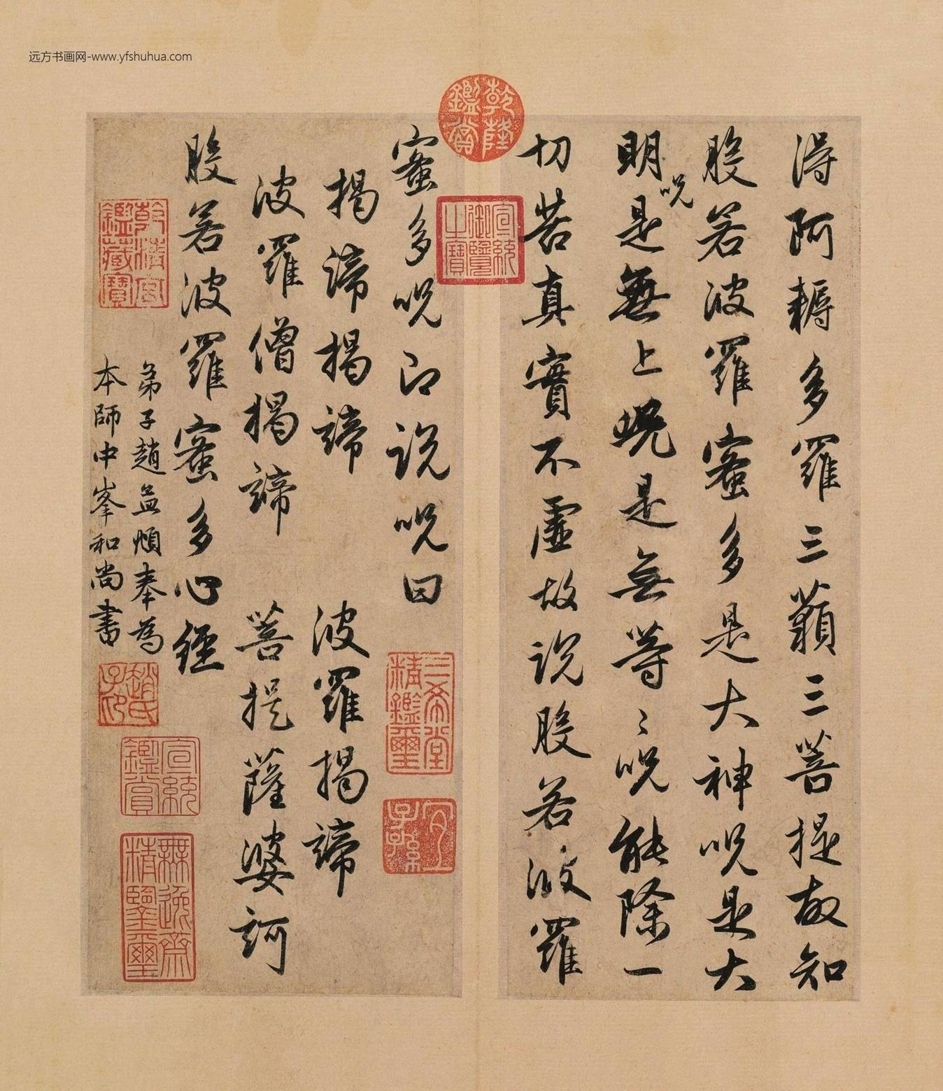 远方书画网-www.yfshuhua.com
乾隆鑑賞
得阿耨多羅三藐三菩提故知
般若波羅蜜多是大神呪是大
明呪是無上呪是無等〻呪能除一
切苦真實不虛故說般若波羅
宣統御覽之寶
蜜多呪即說呪曰
三希堂精鑑璽
宜子孫
揭諦揭諦 波羅揭諦
波羅僧揭諦 菩提薩婆訶
般若波羅蜜多心經
弟子趙孟頫奉為
本師中峯和尚書
乾清宮鑑藏寶
趙氏子昂
宣統鑑賞
無逸齋精鑒璽